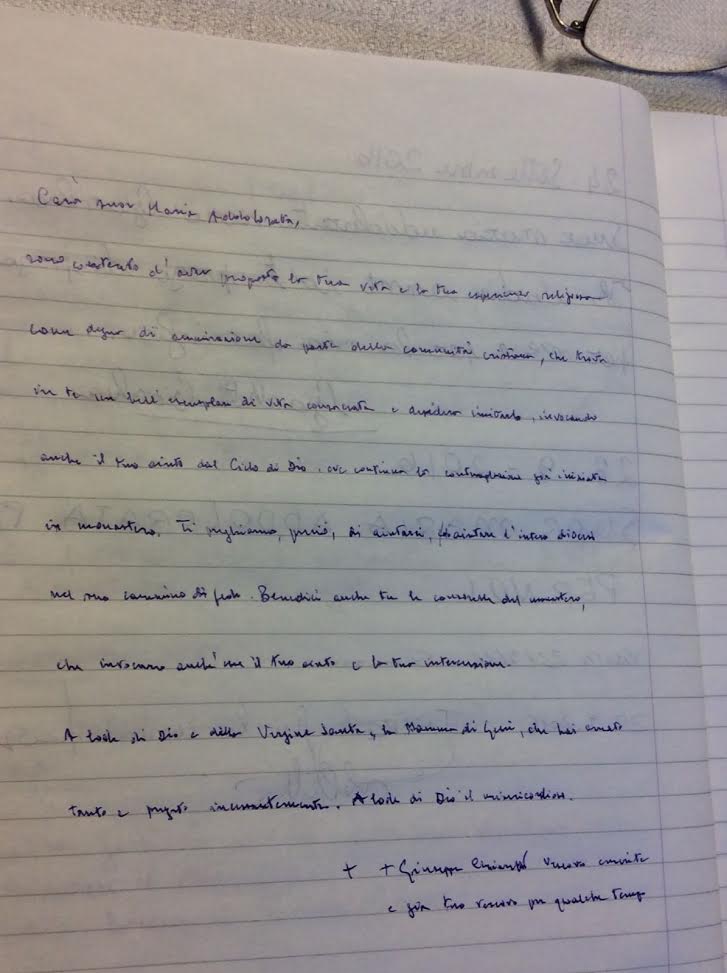 Cara suor Maria Addolorata,
sono contento d'aver proposto la tua vita e la tua esperienza religiosa
come degna di ammirazione da parte della comunità cristiana, che trova
in te un bell'esemplare di vita consacrata e desidera imitarlo, invocando
anche il tuo aiuto dal Cielo di Dio, ove continua la contemplazione già iniziata
in monastero. Ti preghiamo, perciò, di aiutarci, di aiutare l'intera diocesi
nel suo cammino di fede. Benedici anche tu le consorelle del monastero,
che invocano anch'esse il tuo aiuto e la tua intercessione.
A lode di Dio e della Vergine Santa, la Mamma di Gesù, che hai amato
tanto e pregato incessantemente. A lode di Dio il misericordioso.
+ +Giuseppe vescovo emerito
e già tuo vescovo per qualche tempo